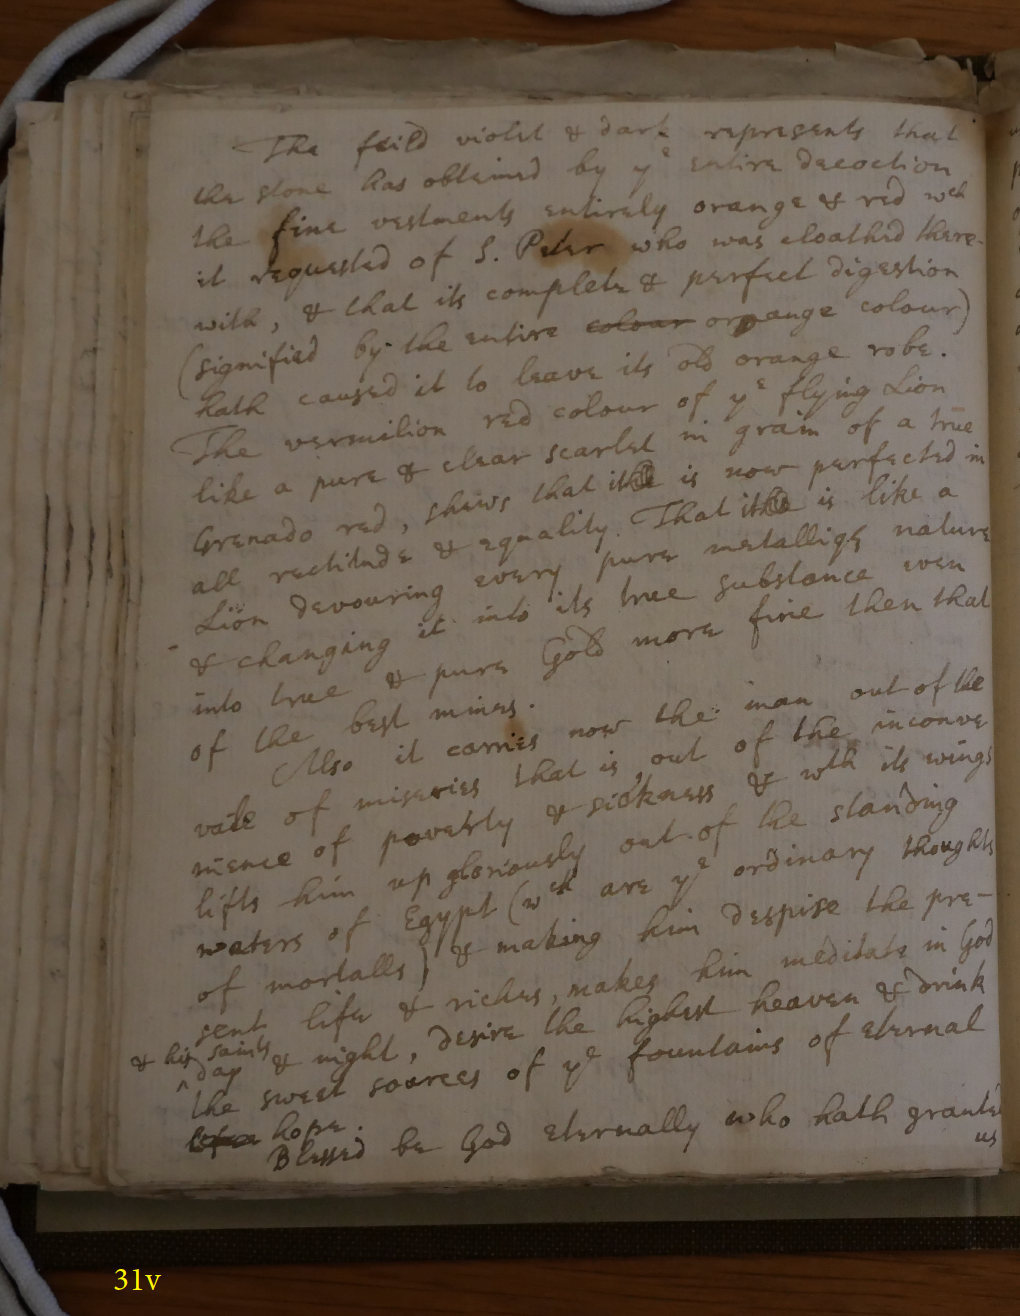 The feild violet & dark represents that
the stone has obteined by yᵉ entire decoction
the fine vestments entirely orange & red wᶜʰ
it requested of S. Peter who was cloathed there-
with, & that its complete & perfect digestion
(signified by the entire colour orange colour)
hath caused it to leave its old orange robe.
The vermilion red colour of yᵉ flying Lion
like a pure & clear scarlet in grain of a true
Grenado red, shews that it is now perfected in
all rectitude & equality. That it is like a
Lion devouring every pure metallick nature
& changing it into its true substance even
into true & pure Gold more fine then that
of the best mines.
Also it carries now the man out of the
vale of miseries that is, out of the inconve
nience of poverty & sickness & wᵗʰ its wings
lifts him up gloriously out of the standing
waters of Egypt (wᶜʰ are yᵉ ordinary thoughts
of mortalls) & making him despise the pre-
sent life & riches, makes him meditate in God
& his saints
^ day & night, desire the highest heaven & drink
the sweet sources of yᵉ fountains of eternal
hope.
Blessed be God eternally who hath granted
us
31v